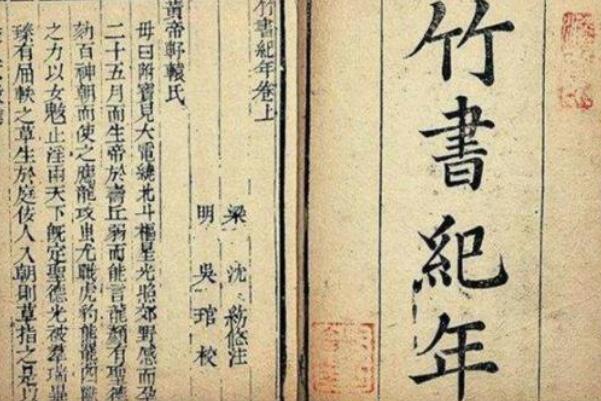 竹書紀年
竹書紀年卷上
梁 沈 約 注
明 吳 琯 校
黃帝軒轅氏
母曰附寶見大電繞北斗樞星光照郊野感而孕
二十五月而生帝於壽丘弱而能言龍顏有聖德
劾百神朝而使之應龍攻蚩尤戰虎豹熊羆四獸
之力以女魃止淫雨天下既定聖德光被羣瑞畢
臻有屈軼之草生於庭佞人入朝則草指之是以